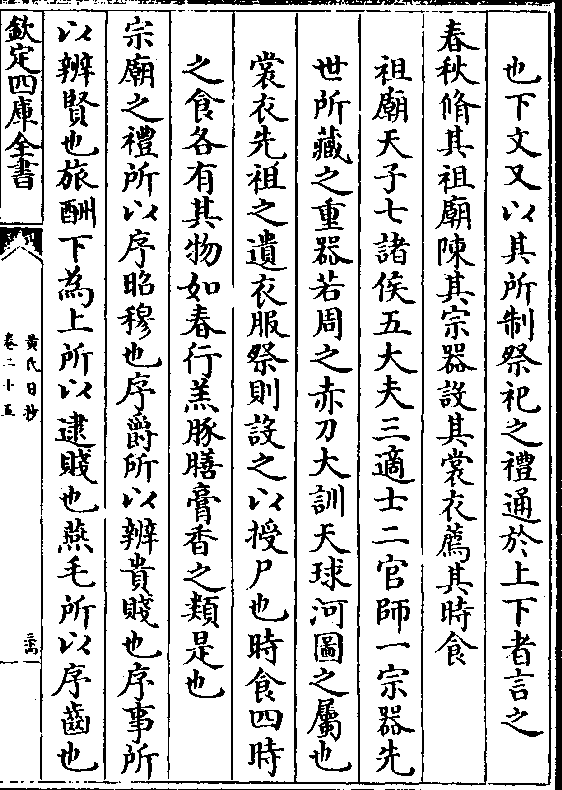 也下文又以其所制祭祀之禮通於上下者言之
春秋脩其祖廟陳其宗器設其裳衣薦其時食
祖廟天子七諸侯五大夫三適士二官師一宗器先
世所藏之重器若周之赤刀大訓天球河圖之屬也
裳衣先祖之遺衣服祭則設之以授尸也時食四時
之食各有其物如春行羔豚膳膏香之類是也
宗廟之禮所以序昭穆也序爵所以辨貴賤也序事所
以辨賢也旅酬下為上所以逮賤也燕毛所以序齒也
欽定四庫全書
黃氏日抄
卷二十五